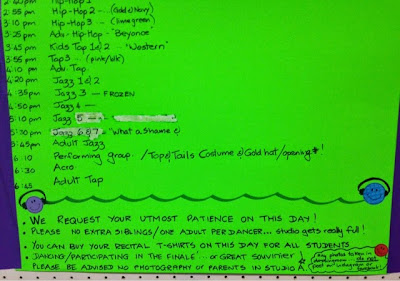 2:40 pm Hip-Hop 1
2:55 pm Hip-Hop 2 - (Gold & Navy)
3:10 pm Hip-Hop 3 - (lime green)
3:25 pm Adv. Hip-Hop - "Beyonce"
3:45 pm Kids Tap 1&2 - "Western"
3:55 pm Tap 3 - (pink/blk)
4:10 pm Adv. Tap
4:20 pm Jazz 1&2
4:35 pm Jazz 3 - FROZEN
4:50 pm Jazz 4 -
5:10 pm Jazz 5 -
5:30 pm Jazz 6&7 - "What a Shame"
5:45 pm Adult Jazz
6:10 Performing group. /Top & Tails Costume & Gold hat/opening #!
6:30 Acro
6:45 Adult Tap
• WE REQUEST YOUR UTMOST PATIENCE ON THIS DAY!
• PLEASE NO EXTRA SIBLINGS/ONE ADULT PER DANCER... studio gets really full!
• YOU CAN BUY YOUR RECITAL T-SHIRTS ON THIS DAY FOR ALL STUDENTS
DANCING/PARTICIPATING IN THE FINALE... or GREAT souvenier
PLEASE BE ADVISED NO PHOTOGRAPHY OF PARENTS IN STUDIO A.
Any photos taken in
do not
post on instagram or
facebook!